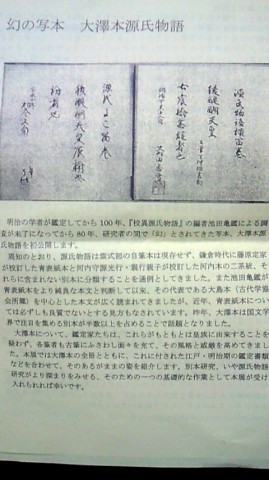 幻の写本　大澤本源氏物語
後醍醐天皇
源氏よこ笛巻
後醍醐天皇宸翰也
明治の学者が鑑定してから100年、『校異源氏物語』の編者池田亀鑑による調
査が未了になってから80年、研究者の間で「幻」とされてきた写本、大澤本源
氏物語を初公開します。
周知のとおり、源氏物語は紫式部の自筆本は現存せず、鎌倉時代に藤原定家
が校訂した青表紙本と河内守源光行・親行親子が校訂した河内本の二系統、そ
れらに含まれない別本に分類することを通例としてきました。また池田亀鑑が
青表紙本をより純良な本文と判断して以来、その代表である大島本（古代学協
会所蔵）を中心とした本文が広く読まれてきましたが、近年、青表紙本につい
ては必ずしも良質でないとする見方もなされています。昨年、大澤本は国文学
界で注目を集める別本が半数以上を占めることで話題となりました。
大澤本について、鑑定家たちは、これらがもともとは皇族に由来することを
疑わず、各筆者も古筆にふさわしい面々を充て、その風格と威厳を高めてきまし
た。本展では大澤本の全冊とともに、これに付された江戸・明治期の鑑定書類
などを合わせて、そのあるがままの姿を紹介します。別本研究、いや源氏物語
研究がより深まりをみせる、そのための一つの基礎的な作業として本展が受け
入れられれば幸いです。